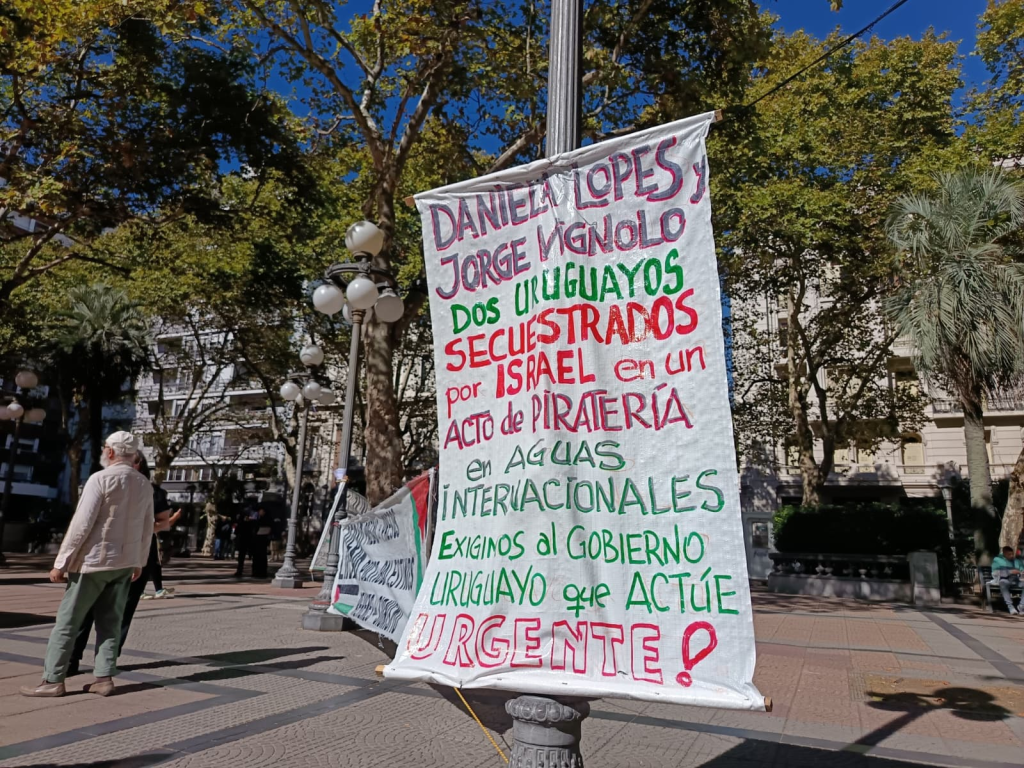 DANIELA LOPES y
JORGE VIGNOLO
DOS URUGUAYOS
SECUESTRADOS
por ISRAEL en un
ACTO de PIRATERÍA
en AGUAS
INTERNACIONALES
EXIGIMOS al GOBIERNO
URUGUAYO que ACTÚE
URGENTE!